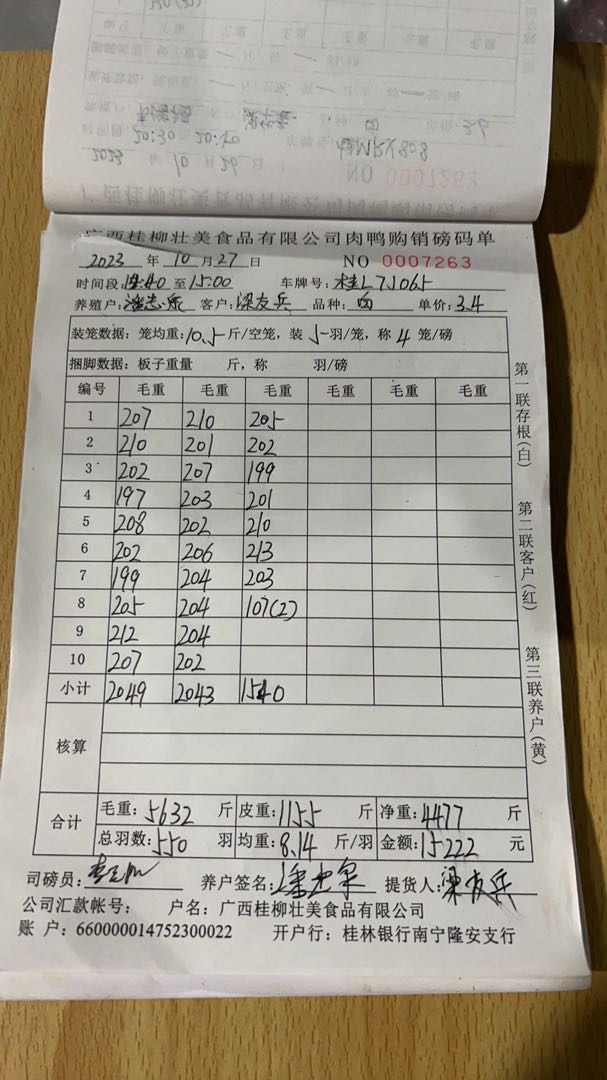 NO 0007262
2023 年 10 月 29 日
20:30 至 20:40
广西桂柳壮美食品有限公司肉鸭购销磅码单
2023 年 10 月 27 日 NO 0007263
时间段: 至 15:00 车牌号: 桂L7J065
养殖户: 客户: 梁友兵 品种: 单价: 3.4
装笼数据: 笼均重: 10.5 斤/空笼, 装 5 羽/笼, 称 4 笼/磅
捆脚数据: 板子重量 斤, 称 羽/磅
编号 毛重 毛重 毛重 毛重 毛重 毛重
1 207 210 205
2 210 201 202
3 202 207 199
4 197 203 201
5 208 202 210
6 202 206 213
7 199 204 203
8 205 204 107(2)
9 212 204
10 207 202
小计 2049 2043 1540
核算
合计 毛重: 5632 斤 皮重: 1155 斤 净重: 4477 斤
总羽数: 550 羽 均重: 8.14 斤/羽 金额: 15222 元
司磅员: 养户签名: 提货人: 梁友兵
公司汇款帐号: 户名: 广西桂柳壮美食品有限公司
账 户: 660000014752300022 开户行: 桂林银行南宁隆安支行
第一联存根(白)
第二联客户(红)
第三联养户(黄)